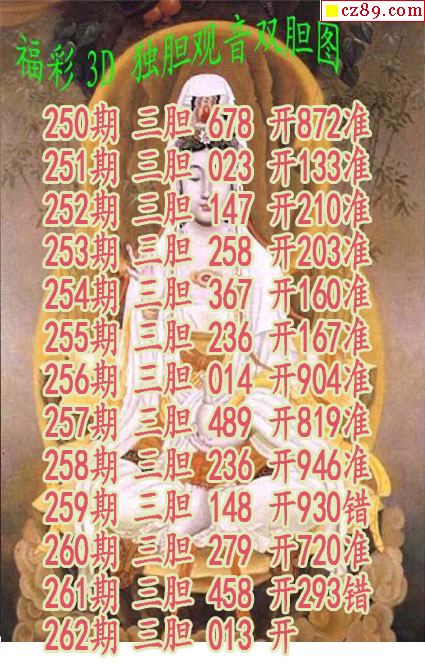 cz89.com
福彩 3D 独胆观音双胆图
250期 三胆 678 开872准
251期 三胆 023 开133准
252期 三胆 147 开210准
253期 三胆 258 开203准
254期 三胆 367 开160准
255期 三胆 236 开167准
256期 三胆 014 开904准
257期 三胆 489 开819准
258期 三胆 236 开946准
259期 三胆 148 开930错
260期 三胆 279 开720准
261期 三胆 458 开293错
262期 三胆 013 开